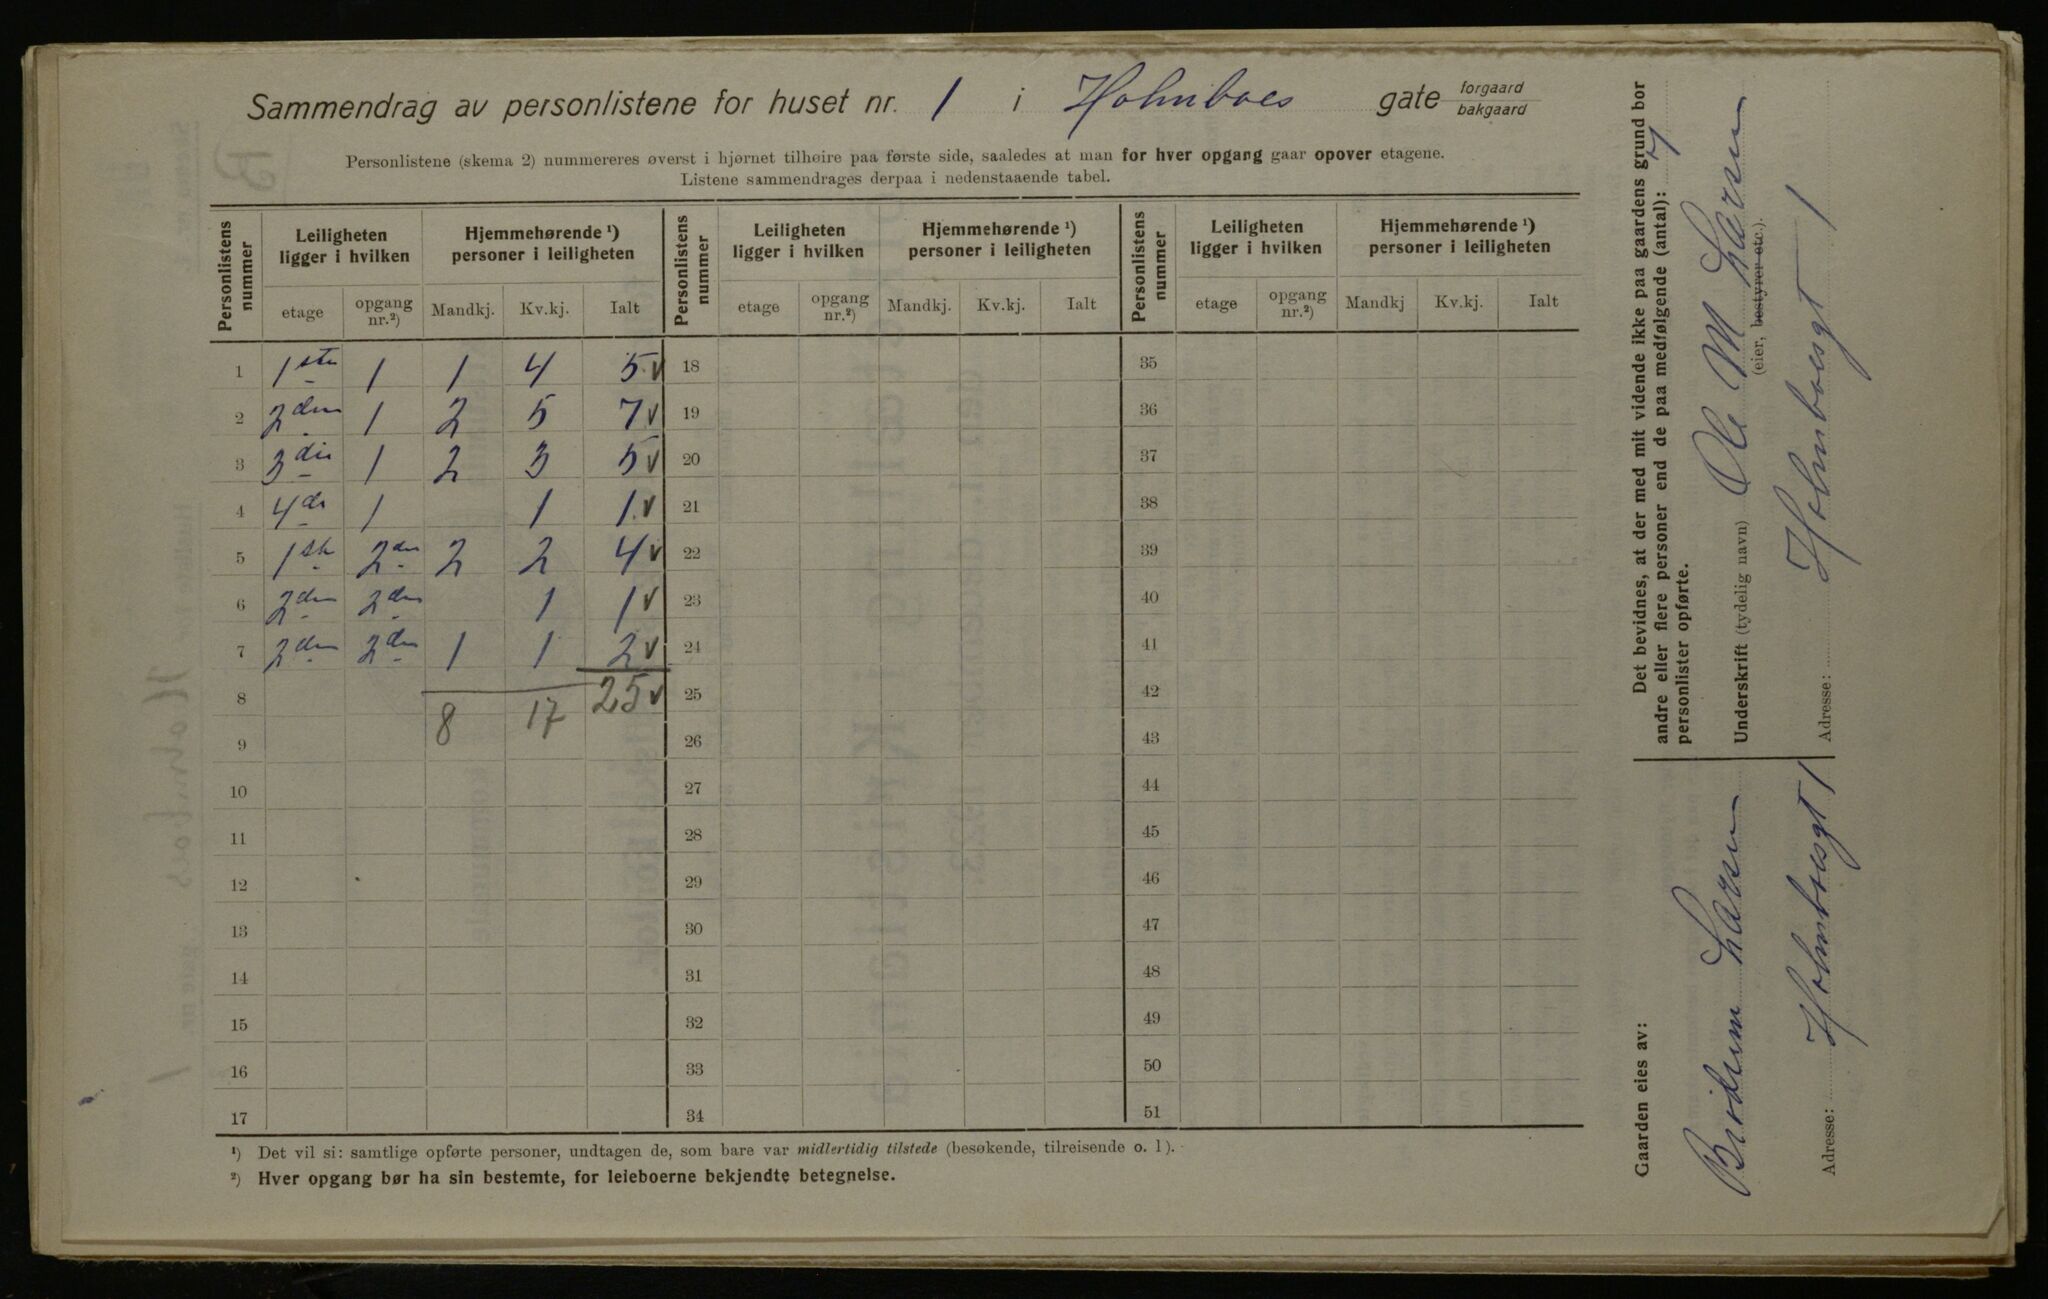 Sammendrag av personlistene for huset nr. 1 i Holmboes gate forgaard
bakgaard
Personlistene (skema 2) nummereres øverst i hjørnet tilhøire paa første side, saaledes at man for hver opgang gaar opover etagene.
Listene sammendrages derpaa i nedenstaaende tabel.
Personlistens nummer | Leiligheten ligger i hvilken | Hjemmehørende ¹) personer i leiligheten | Personlistens nummer | Leiligheten ligger i hvilken | Hjemmehørende ¹) personer i leiligheten | Personlistens nummer | Leiligheten ligger i hvilken | Hjemmehørende ¹) personer i leiligheten
etage | opgang nr.²) | Mandkj. | Kv.kj. | Ialt | etage | opgang nr.²) | Mandkj. | Kv.kj. | Ialt | etage | opgang nr.²) | Mandkj | Kv.kj. | Ialt
1 | 1ste | 1 | 1 | 4 | 5 v | 18 | 35
2 | 2den | 1 | 2 | 5 | 7 v | 19 | 36
3 | 3die | 1 | 2 | 3 | 5 v | 20 | 37
4 | 4de | 1 | | 1 | 1 v | 21 | 38
5 | 1ste | 2den | 2 | 2 | 4 v | 22 | 39
6 | 2den | 2den | | 1 | 1 v | 23 | 40
7 | 2den | 2den | 1 | 1 | 2 v | 24 | 41
8 | | | 8 | 17 | 25 v | 25 | 42
9 | 26 | 43
10 | 27 | 44
11 | 28 | 45
12 | 29 | 46
13 | 30 | 47
14 | 31 | 48
15 | 32 | 49
16 | 33 | 50
17 | 34 | 51
¹) Det vil si: samtlige opførte personer, undtagen de, som bare var midlertidig tilstede (besøkende, tilreisende o. l).
²) Hver opgang bør ha sin bestemte, for leieboerne bekjendte betegnelse.
Det bevidnes, at der med mit vidende ikke paa gaardens grund bor
andre eller flere personer end de paa medfølgende (antal): 7
personlister opførte.
Underskrift (tydelig navn) Ole M Larsen
(eier, bestyrer etc.).
Adresse: Holmboesgt 1
Gaarden eies av:
Larsen
Adresse: Holmboesgt 1